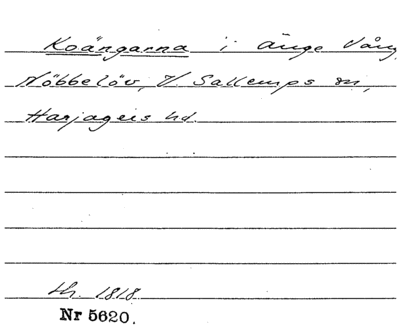 Koängarna i Änge Vång
Nöbbelöv, V. Sallerups sn,
Harjagers hd.
1818
Nr 5620.